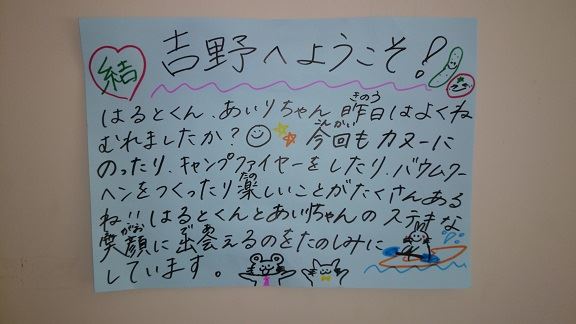 結 吉野へようこそ!
はるとくん、あいりちゃん 昨日はよくね
むれましたか? 今回もカヌーに
のったり、キャンプファイヤーをしたり、バウムクー
ヘンをつくったり楽しいことがたくさんある
ね!!はるとくんとあいりちゃんの ステキな
笑顔に出会えるのをたのしみに
しています。